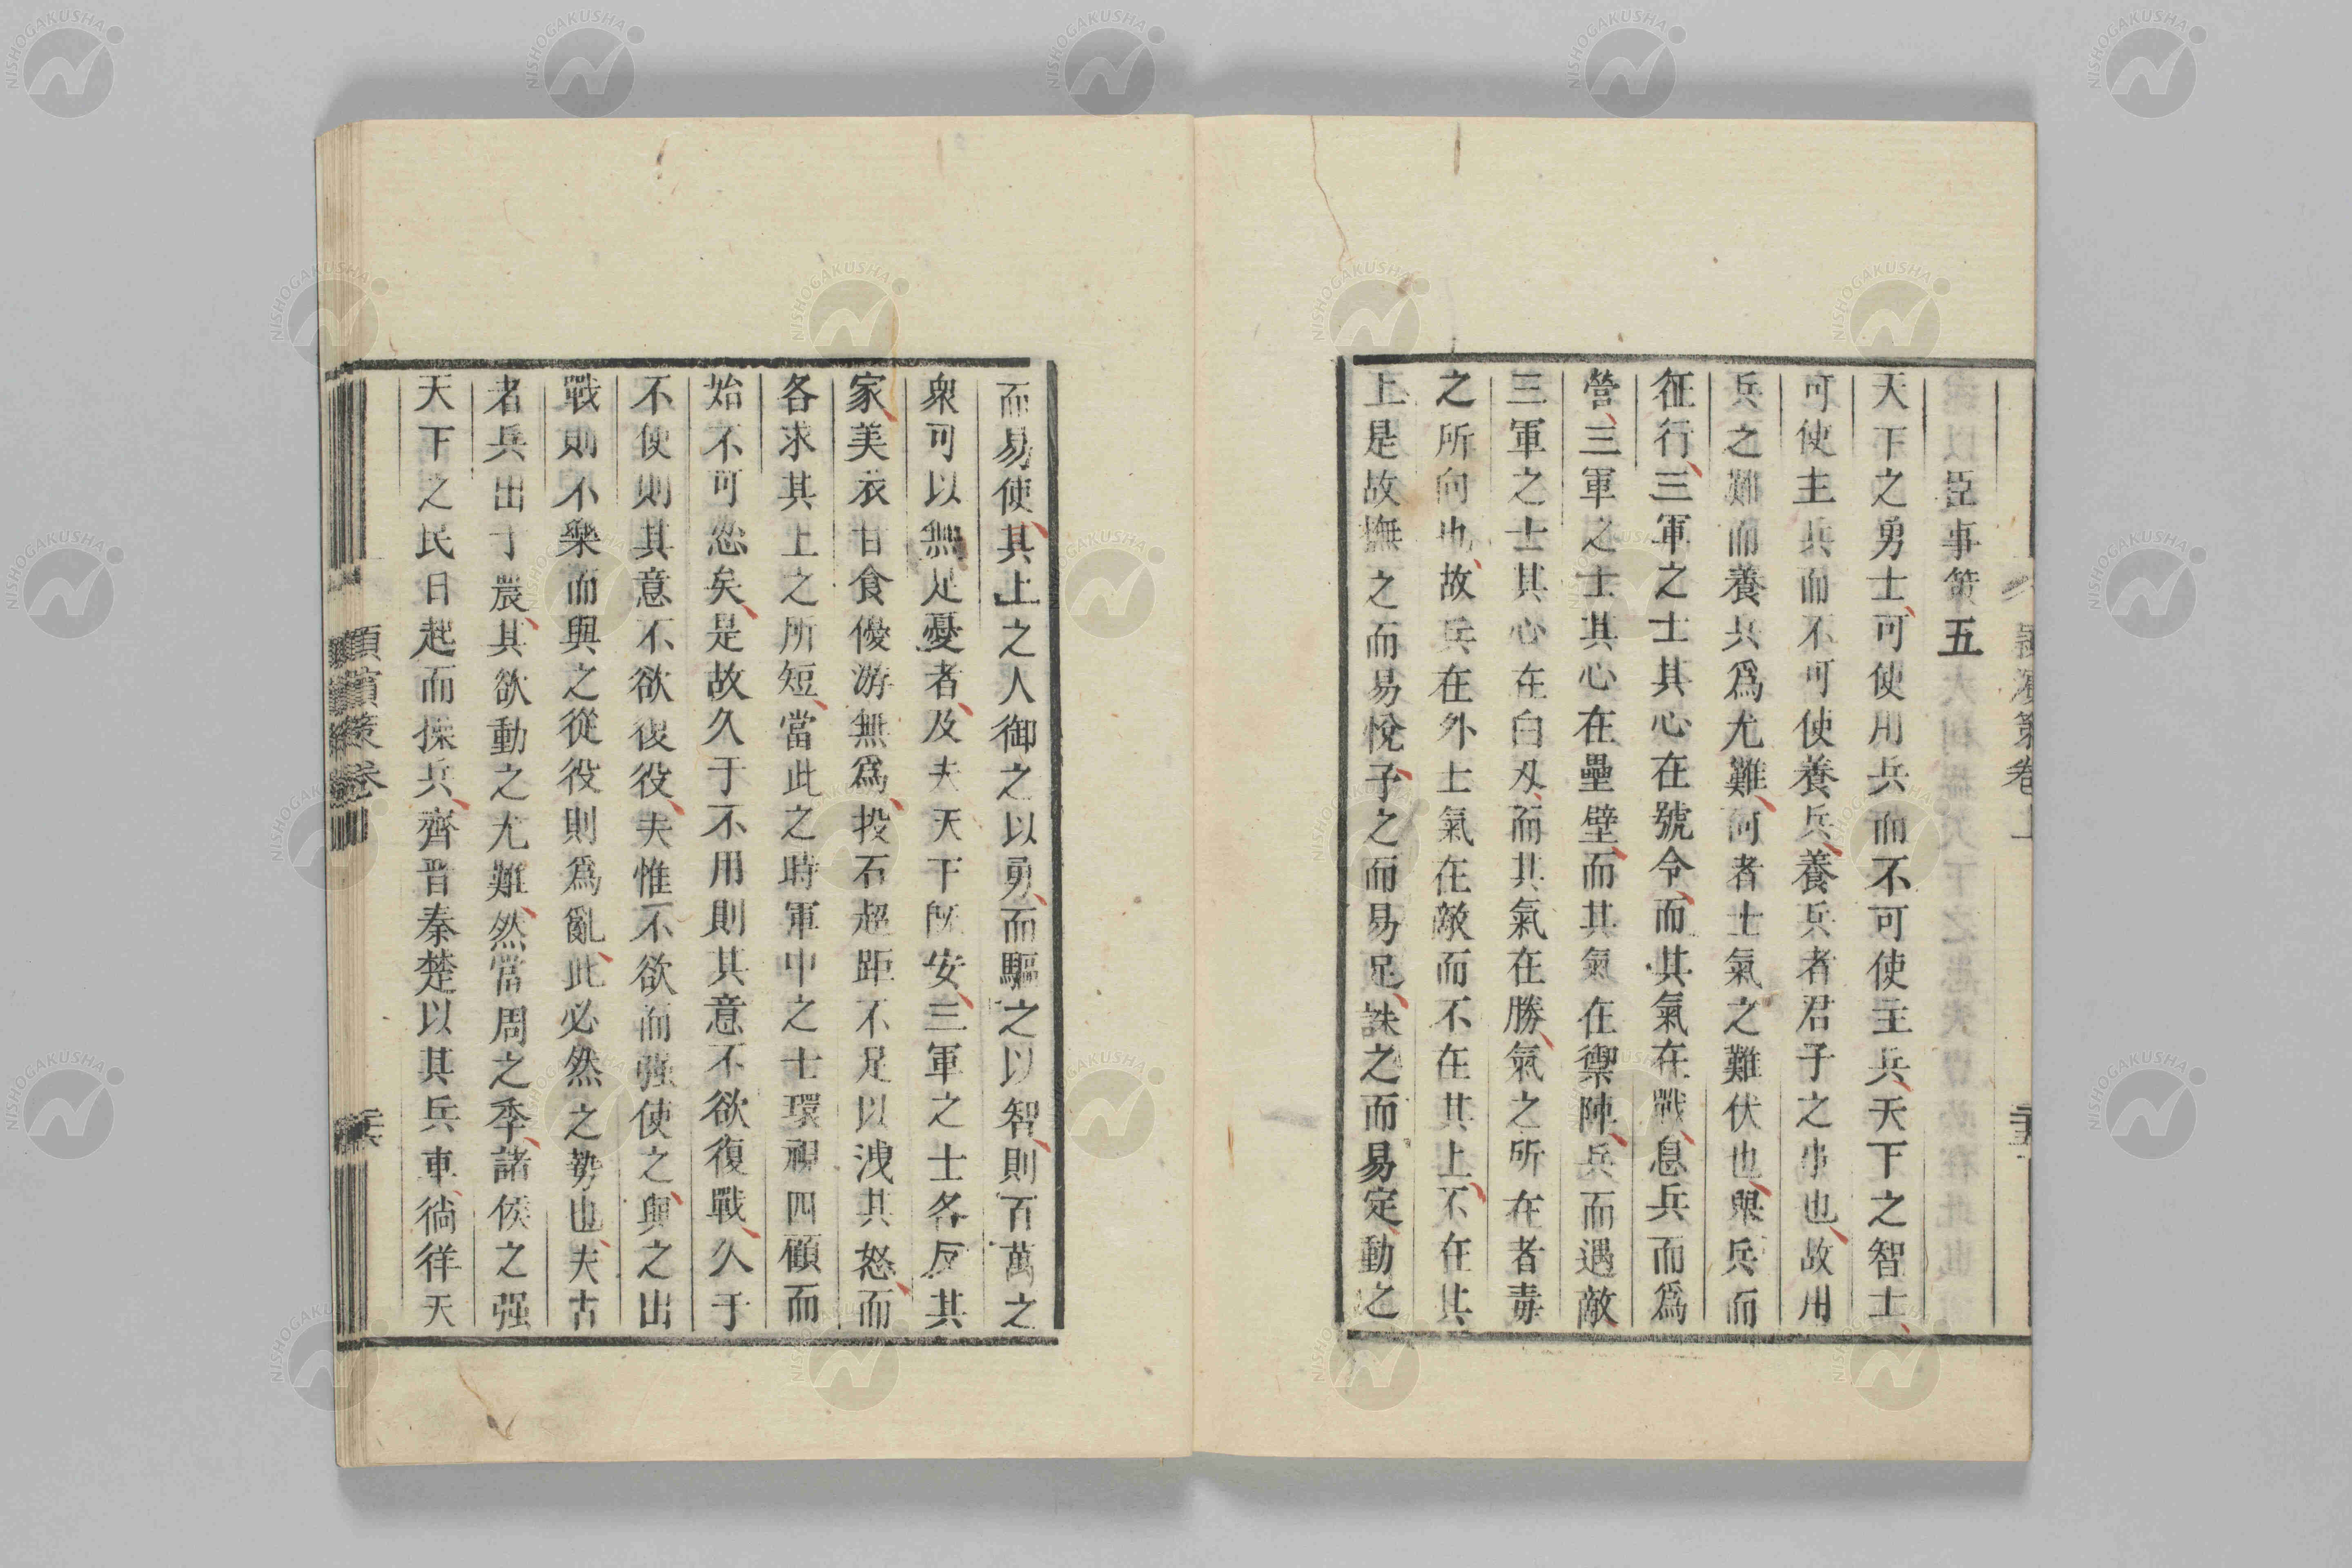 臣事策五
天下之勇士可使用兵而不可使主兵天下之智士
可使主兵而不可使養兵養兵者君子之事也故用
兵之難而養兵爲尤難何者士氣之難伏也與兵而
征行三軍之士其心在號令而其氣在戰息兵而爲
營三軍之士其心在壘壁而其氣在禦陣兵而遇敵
三軍之士其心在白刄而其氣在勝氣之所在者毒
之所向也故兵在外士氣在敵而不在其上不在其
上是故撫之而易悅予之而易足誅之而易定動之
而易使其上之人御之以勇而驅之以智則百萬之
衆可以無足憂者及夫天下旣安三軍之士各反其
家美衣甘食優游無爲投石超距不足以洩其怒而
各求其上之所短當此之時軍中之士環視四顧而
始不可忽矣是故久于不用則其意不欲復戰久于
不使則其意不欲復役夫惟不欲而强使之與之出
戰則不樂而與之從役則爲亂此必然之勢也夫古
者兵出于農其欲動之尤難然當周之季諸侯之强
天下之民日起而操兵齊晋秦楚以其兵車徜徉天
潁濱策卷
NISHOGAKUSHA